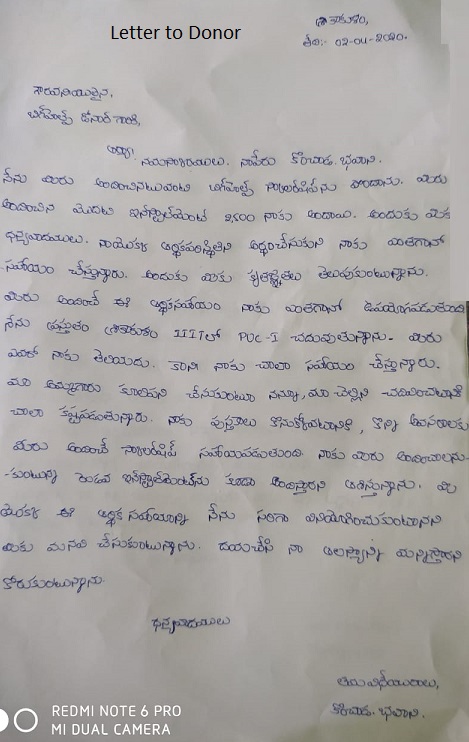 Letter to Donor
శ్రీకాకుళం,
తేది:- 02-04-2020.
గౌరవనీయులైన,
బిగ్‌హెల్ప్ డోనార్ గారికి,
అయ్యా!
నమస్కారములు. నాపేరు కొంచాడ. భవాని.
నేను మీరు అందించినటువంటి బిగ్‌హెల్ప్ స్కాలర్‌షిప్‌ను పొందాను. మీరు
అందించిన మొదటి ఇన్‌స్టాల్‌మెంట్ 2500 నాకు అందాయి. అందుకు మీకు
ధన్యవాదములు. నాయొక్క ఆర్థికపరిస్థితిని అర్థంచేసుకుని నాకు ఎంతగానో
సహాయం చేస్తున్నారు. అందుకు మీకు కృతజ్ఞతలు తెలుపుకుంటున్నాను.
మీరు అందించే ఈ ఆర్థికసహాయం నాకు ఎంతగానో ఉపయోగపడుతుంది
నేను ప్రస్తుతం శ్రీకాకుళం IIITలో PUC-I చదువుతున్నాను. మీరు
ఎవరో నాకు తెలియదు. కానీ నాకు చాలా సహాయం చేస్తున్నారు.
మా అమ్మగారు కూలిపని చేసుకుంటూ నన్నూ, మా చెల్లిని చదివించటానికి
చాలా కష్టపడుతున్నారు. నాకు పుస్తకాలు కొనుక్కోవటానికి, కొన్ని అవసరాలకు
మీరు అందించే స్కాలర్‌షిప్ సహాయపడుతుంది నాకు మీరు అందించాలను-
-కుంటున్న రెండవ ఇన్‌స్టాల్‌మెంట్‌ను కూడా అందిస్తారని ఆశిస్తున్నాను. మీ
యొక్క ఈ ఆర్థిక సహాయాన్ని నేను సరిగా వినియోగించుకుంటానని
మీకు మనవి చేసుకుంటున్నాను. దయచేసి నా ఆలస్యాన్ని మన్నిస్తారని
కోరుకుంటున్నాను.
ధన్యవాదములు
ఇట్లు విధేయురాలు,
కొంచాడ. భవాని.
REDMI NOTE 6 PRO
MI DUAL CAMERA